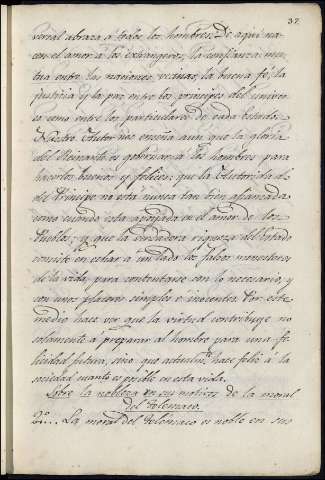 37
versal abraza á todos los hombres. De aqui na-
cen el amor á los extrangeros, la confianza mu-
tua entre las naciones vecinas, la buena fe, la
justicia y la paz entre los principes del univer-
so como entre los particulares de cada Estado.
Nuestro Autor nos enseña aun que la gloria
del Reinante es gobernar á los hombres para
hacerlos buenos y felices; que la Autoridad
del Principe no está nunca tan bien afirmada
como cuando está apoyada en el amor de los
Pueblos; y que la verdadera riqueza del Estado
consiste en echar á un lado las falsas menesteres
de la vida, para contentarse con lo necesario, y
con unos placeres simples é inocentes. Por este
medio hace ver que la virtud contribuye no
solamente á preparar al hombre para una fe-
licidad futura, sino que actualmte hace feliz á la
sociedad cuanto es posible en esta vida.
Sobre la nobleza en sus motivos de la moral
del Telemaco.
2º... La moral del Telemaco es noble en sus